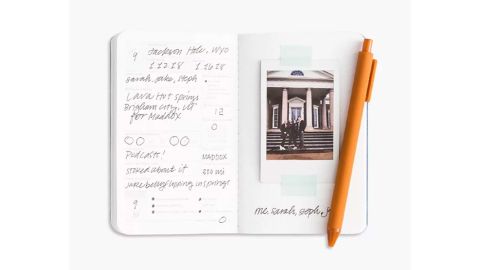 9 Jackson Hole, Wyo
1 12 18 1 16 18
sarah, jake, steph
Lava Hot springs
Brigham city, UT
for Maddox
12
0
Podcasts! MADDOX
stoked about it mi
in springs!
9
0
me, sarah, steph, j